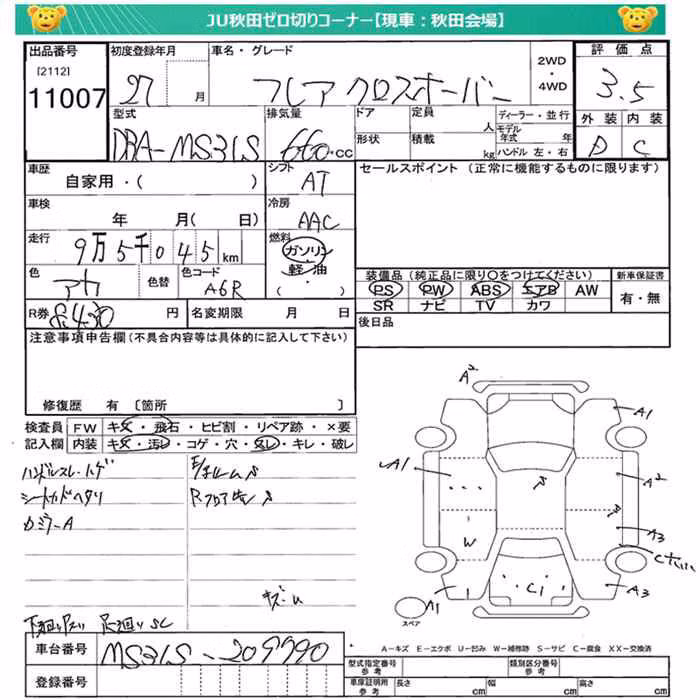 JU秋田ゼロ切りコーナー【現車：秋田会場】
出品番号 初度登録年月 車名・グレード 2WD・4WD 評価点
[2112]
11007 27 月 フレアクロスオーバー 3.5
型式 排気量 ドア 定員 人 ディーラー・並行 外装 内装
DBA-MS31S 660cc 形状 積載 kg モデル年式 年 ハンドル 左・右 D C
車歴 シフト セールスポイント（正常に機能するものに限ります）
自家用・（ ） AT
車検 冷房
年 月（ 日） AAC
走行 燃料
9万5千045km ガソリン
軽油
（ ）
色 色替 色コード 装備品（純正品に限り○をつけてください） 新車保証書
アカ A6R PS PW ABS エアB AW 有・無
SR ナビ TV カワ
R券 8430円 名変期限 月 日 後日品
注意事項申告欄（不具合内容等は具体的に記入して下さい）
修復歴 有 〔箇所 〕
検査員 FW キズ・飛石・ヒビ割・リペア跡・×要
記入欄 内装 キズ・汚レ・コゲ・穴・スレ・キレ・破レ
ハンドルスレ・ハゲ
シートカドヘタリ
カミラーA
キズ・ム
下廻りサビ 足廻りSC
車台番号 MS31S-209990
登録番号
A2
A1
A1
A2
A3
W
C
A1
C1
A3
スペア
A－キズ E－エクボ U－凹み W－補修跡 S－サビ C－腐食 XX－交換済
型式指定番号 参考 類別区分番号 参考
車庫証明用 参考 長さ cm 幅 cm 高さ cm